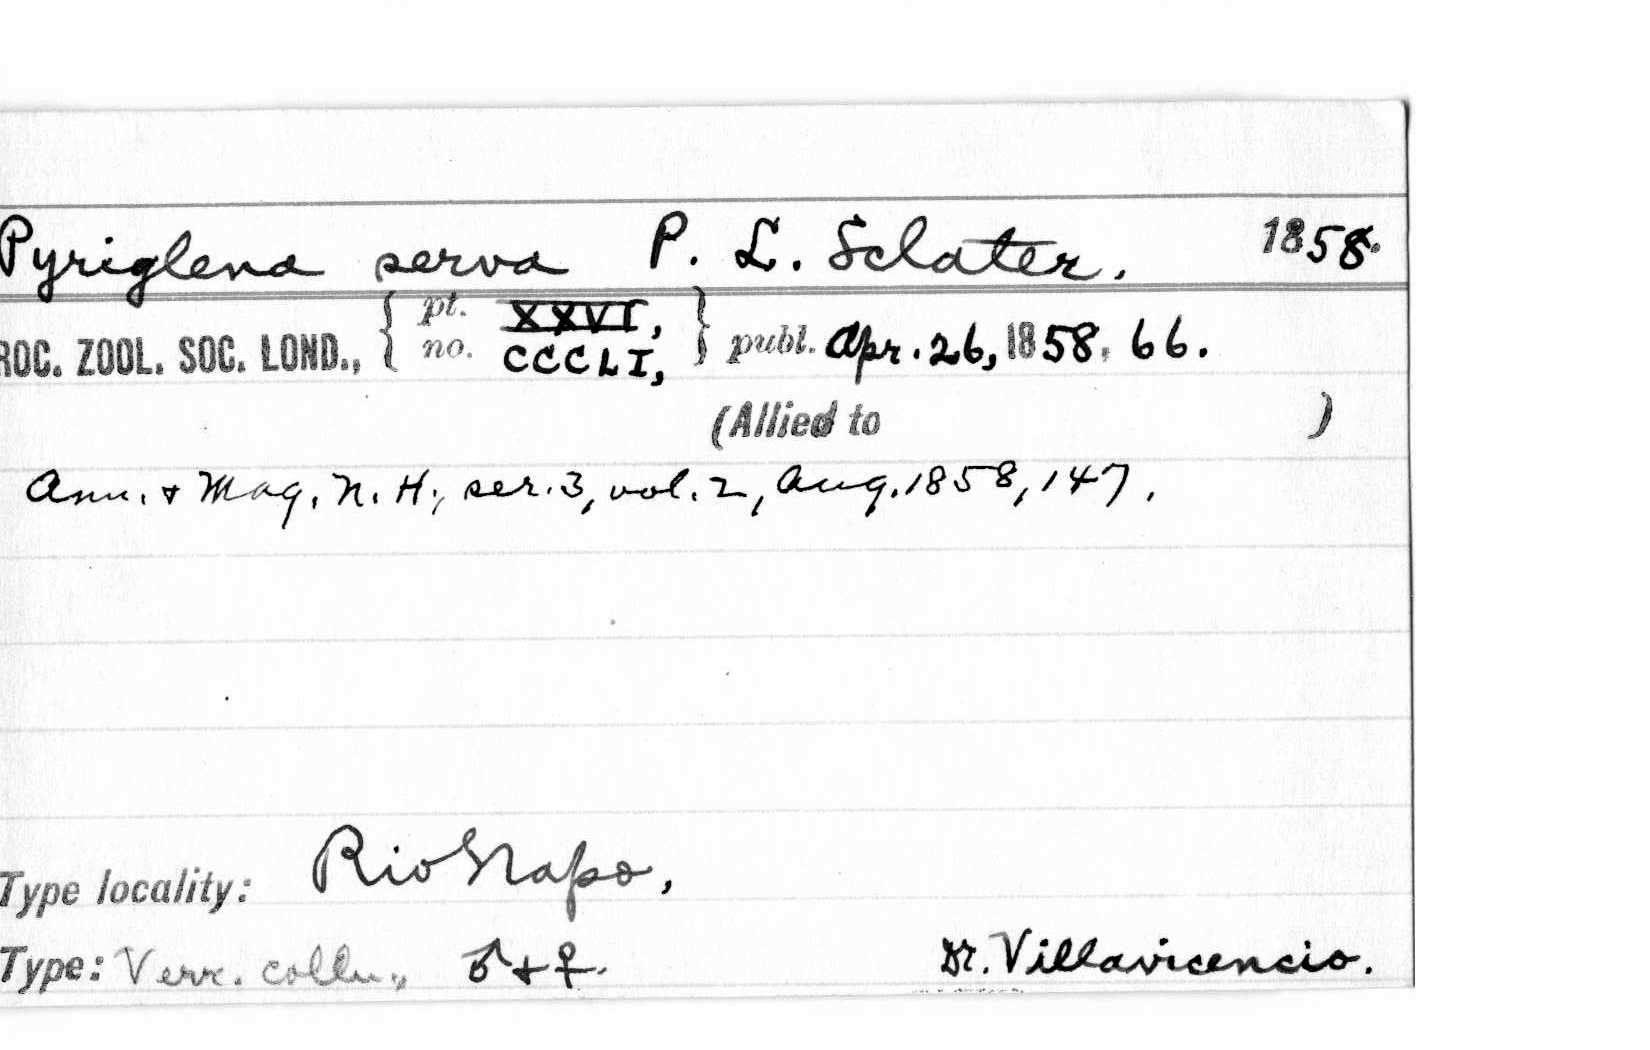 Pyriglena serva P. L. Sclater. 1858.
ROC. ZOOL. SOC. LOND., { pt. XXVI, no. CCCLI, } publ. Apr. 26, 1858, 66.
(Allied to )
Ann. & Mag. N. H., ser. 3, vol. 2, Aug. 1858, 147.
Type locality: Rio Napo,
Type: Verr. colln., ♂ + ♀. Dr. Villavicencio.